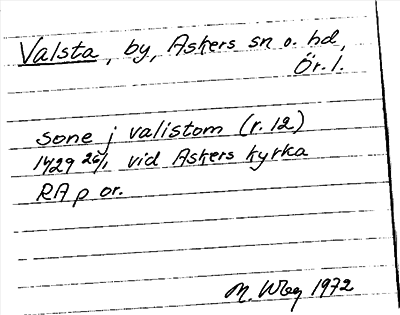 Valsta, by, Askers sn o. hd,
Ör. l.
sone j valistom (r. 12)
1429 26/1 vid Askers kyrka
RA p or.
M. 1972